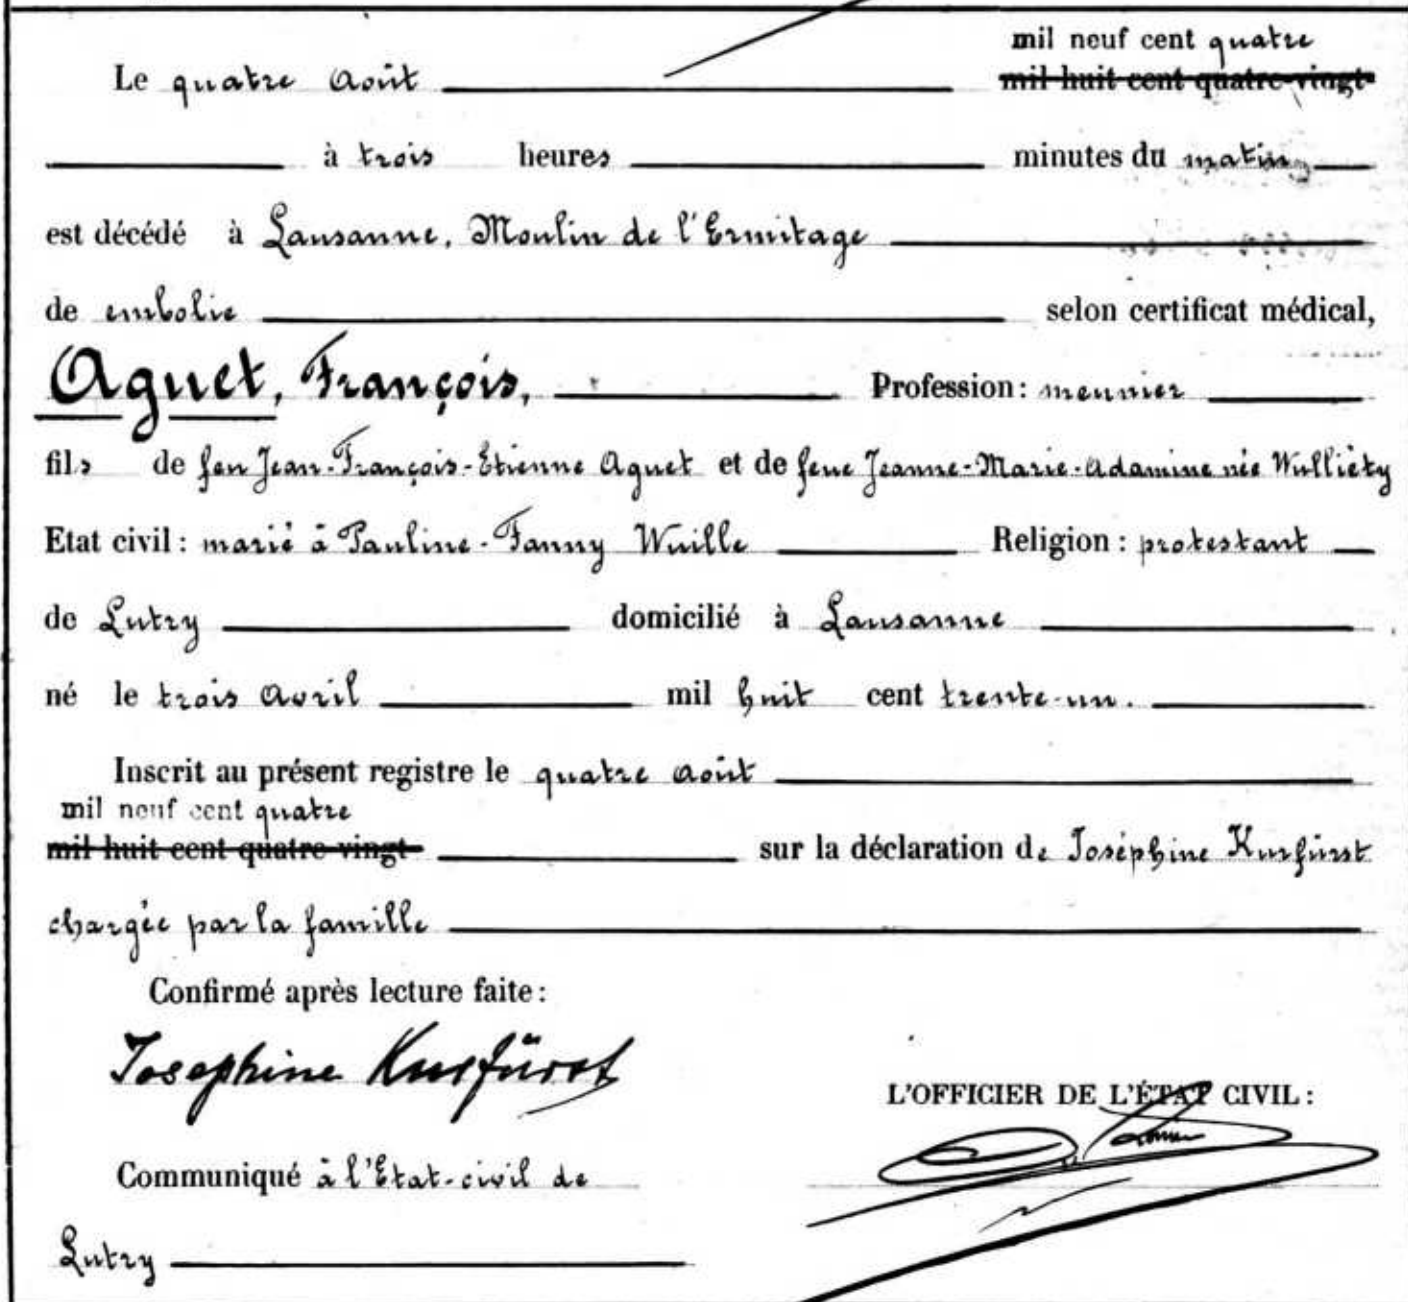 mil neuf cent quatre
Le quatre Août mil huit cent quatre-vingt-
à trois heures minutes du matin
est décédé à Lausanne, Moulin de l'Ermitage
de embolie selon certificat médical,
Aguet, François, Profession : meunier
fils de feu Jean-François-Etienne Aguet et de feue Jeanne-Marie-Adamine née Wulliéty
Etat civil : marié à Pauline-Fanny Wuille Religion : protestant
de Lutry domicilié à Lausanne
né le trois Avril mil huit cent trente-un.
Inscrit au présent registre le quatre août
mil neuf cent quatre
mil huit cent quatre-vingt- sur la déclaration de Joséphine Kurfürst
chargée par la famille
Confirmé après lecture faite :
Josephine Kurfürst
L'OFFICIER DE L'ÉTAT CIVIL :
Communiqué à l'Etat-civil de
Lutry